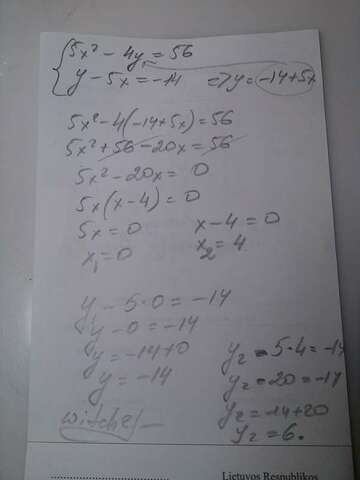 5x² - 4y = 56
y - 5x = -14 => y = -14+5x
5x² - 4(-14+5x) = 56
5x² + 56 - 20x = 56
5x² - 20x = 0
5x(x-4) = 0
5x = 0 x - 4 = 0
x₁ = 0 x₂ = 4
y - 5·0 = -14
y - 0 = -14
y = -14+0
y = -14
y₂ - 5·4 = -14
y₂ - 20 = -14
y₂ = -14+20
y₂ = 6.
Lietuvos Respublikos